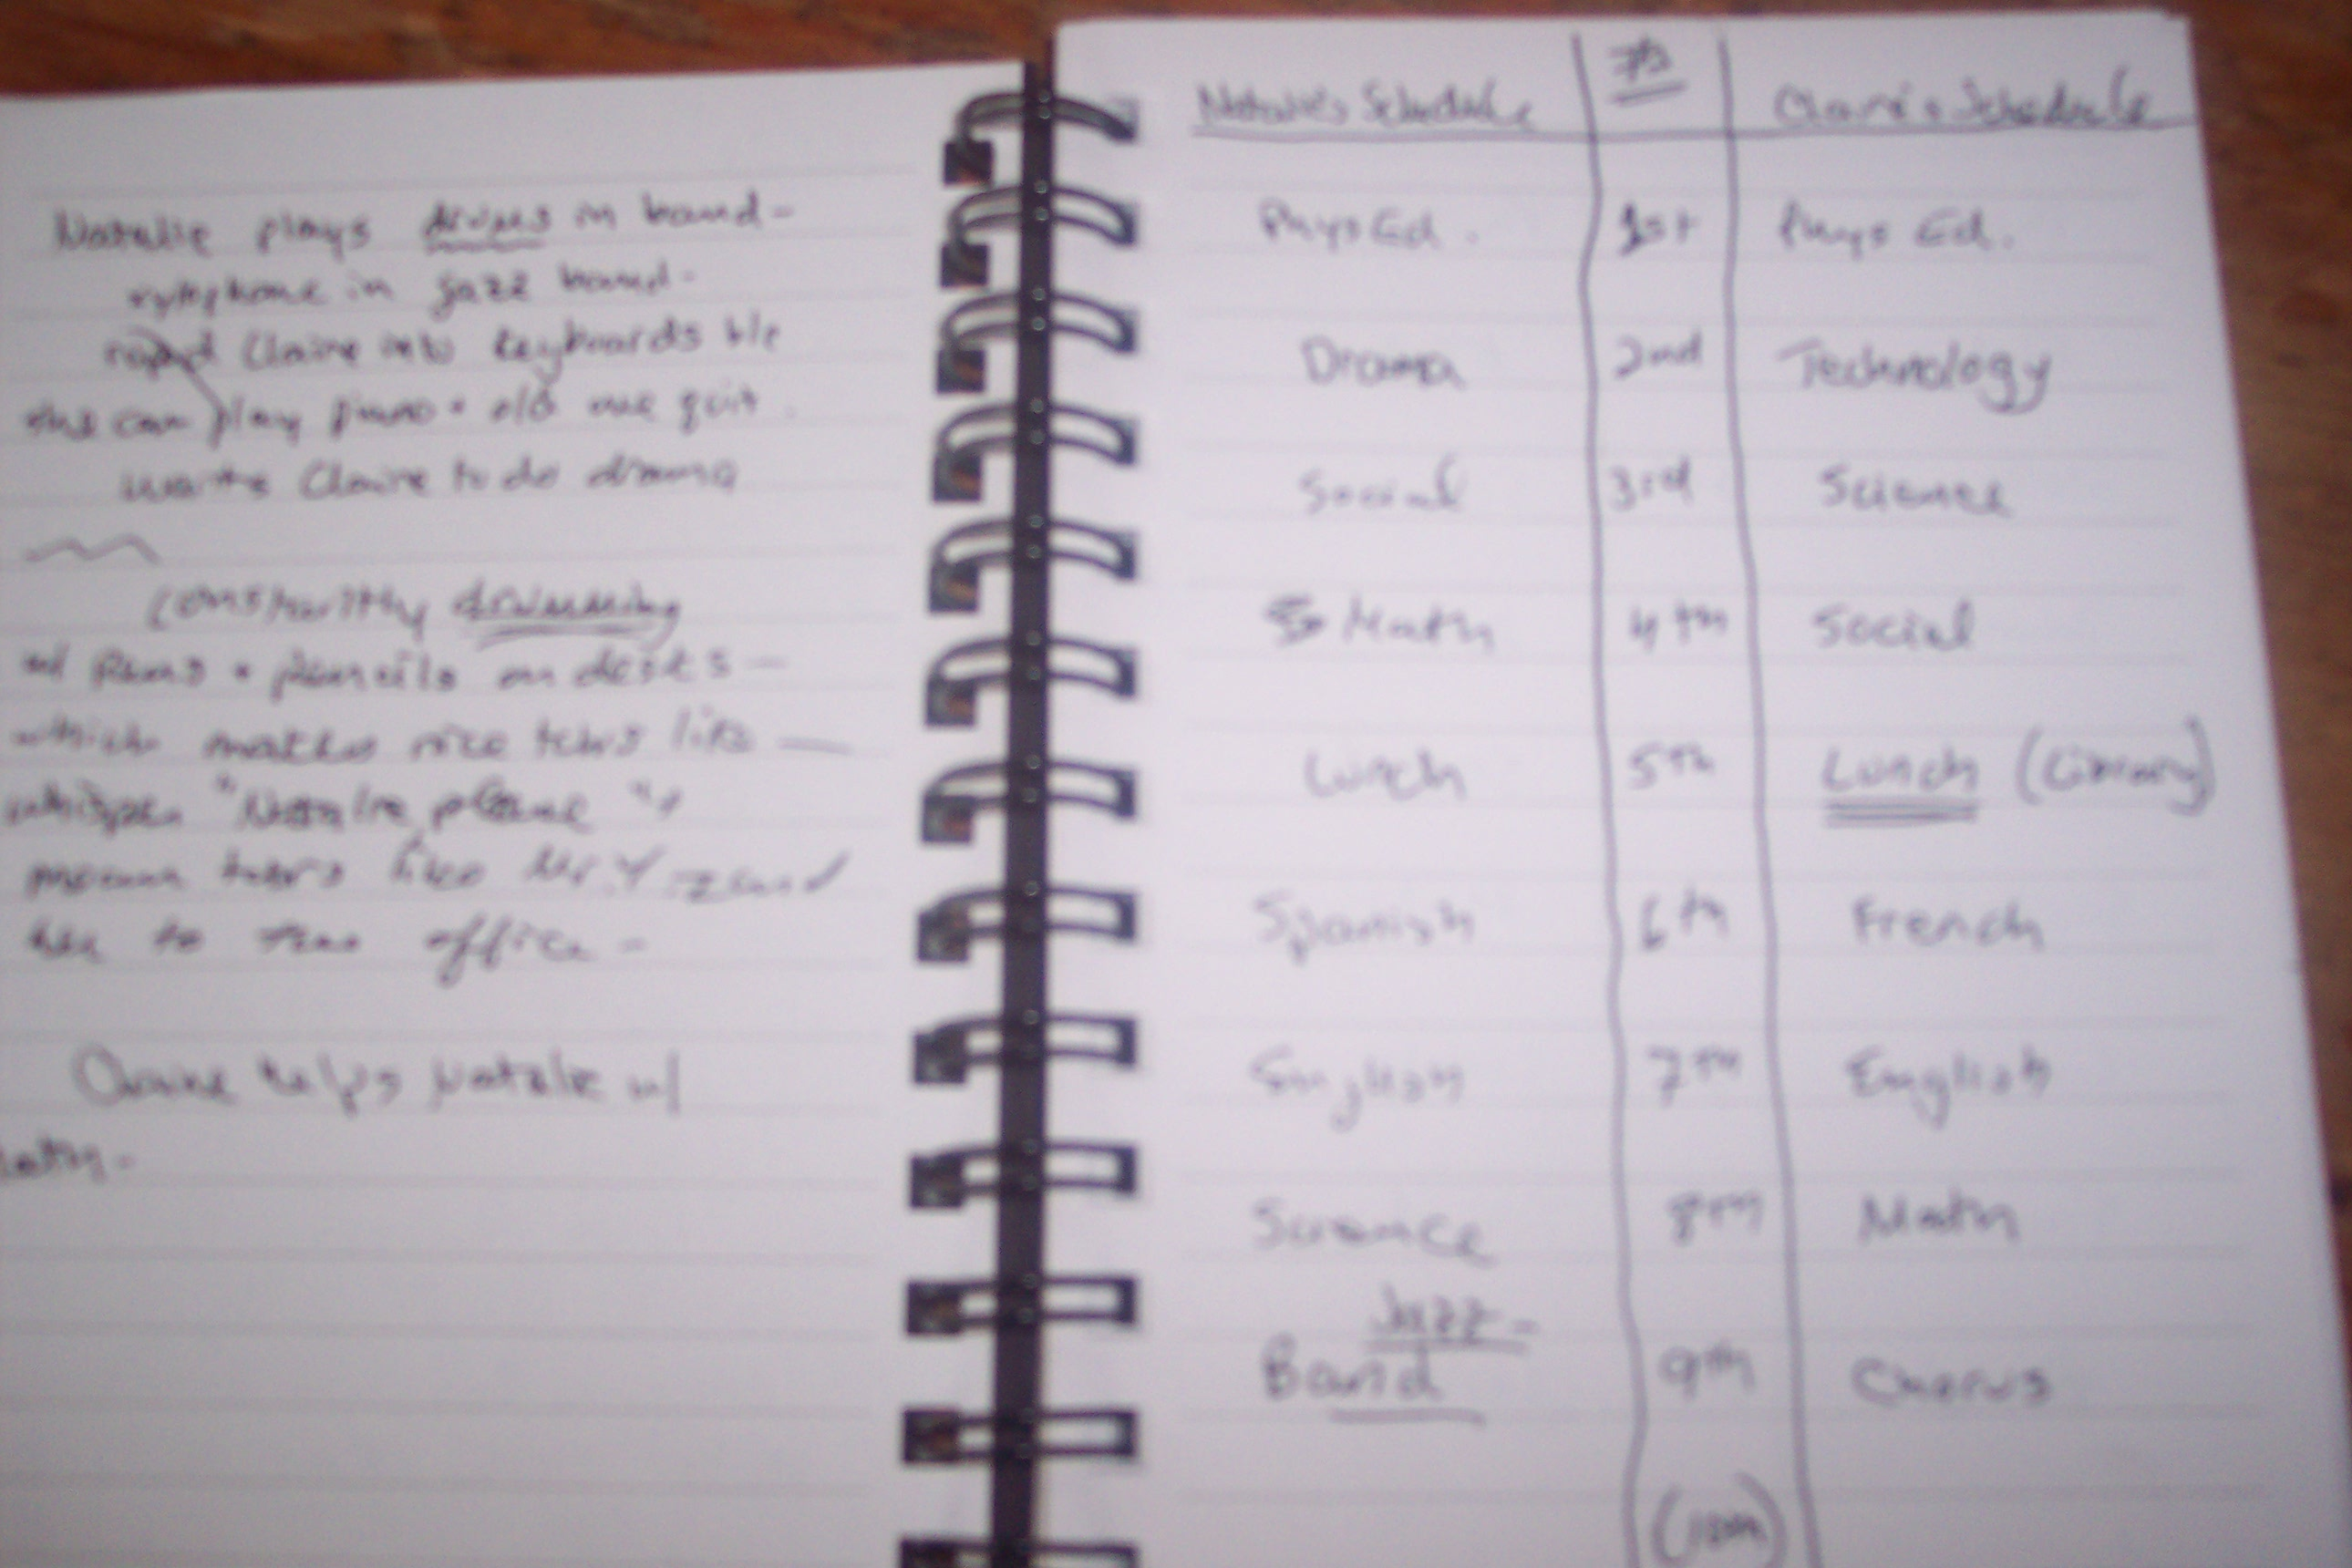 Natalie plays drums in band -
xylophone in jazz band -
Claire into keyboards b/c
she can play piano + old one quit.
wants Claire to do drama
constantly drumming
w/ pens + pencils on desks —
which makes nice tchrs like —
whisper "Natalie, please" +
mean tchrs like Mr. Y. send
her to the office -
Claire helps Natalie w/
Natalie's Schedule Claire's Schedule
Phys Ed. 1st Phys Ed.
Drama 2nd Technology
Social 3rd Science
Math 4th Social
Lunch 5th Lunch (Library)
Spanish 6th French
English 7th English
Science 8th Math
Jazz -
Band 9th Chorus
(10th)